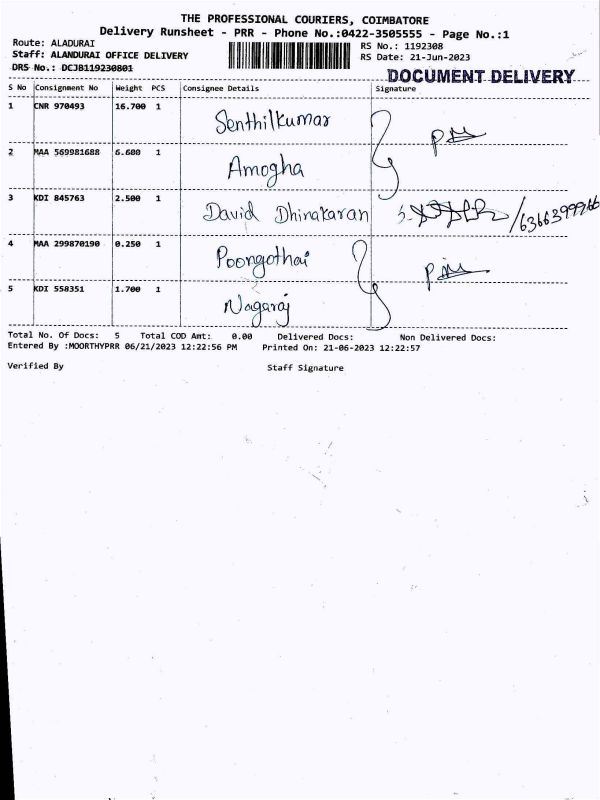 THE PROFESSIONAL COURIERS, COIMBATORE
Delivery Runsheet - PRR - Phone No.:0422-3505555 - Page No.:1
Route: ALADURAI RS No.: 1192308
Staff: ALANDURAI OFFICE DELIVERY RS Date: 21-Jun-2023
DRS No.: DCJB119230801
DOCUMENT DELIVERY
S No Consignment No Weight PCS Consignee Details Signature
1 CNR 970493 16.700 1 Senthilkumar
2 MAA 569981688 6.600 1 Amogha
3 KDI 845763 2.500 1 David Dhinakaran
4 MAA 299870190 0.250 1 Poongothai
5 KDI 558351 1.700 1 Nagaraj
Total No. Of Docs: 5 Total COD Amt: 0.00 Delivered Docs: Non Delivered Docs:
Entered By :MOORTHYPRR 06/21/2023 12:22:56 PM Printed On: 21-06-2023 12:22:57
Verified By Staff Signature